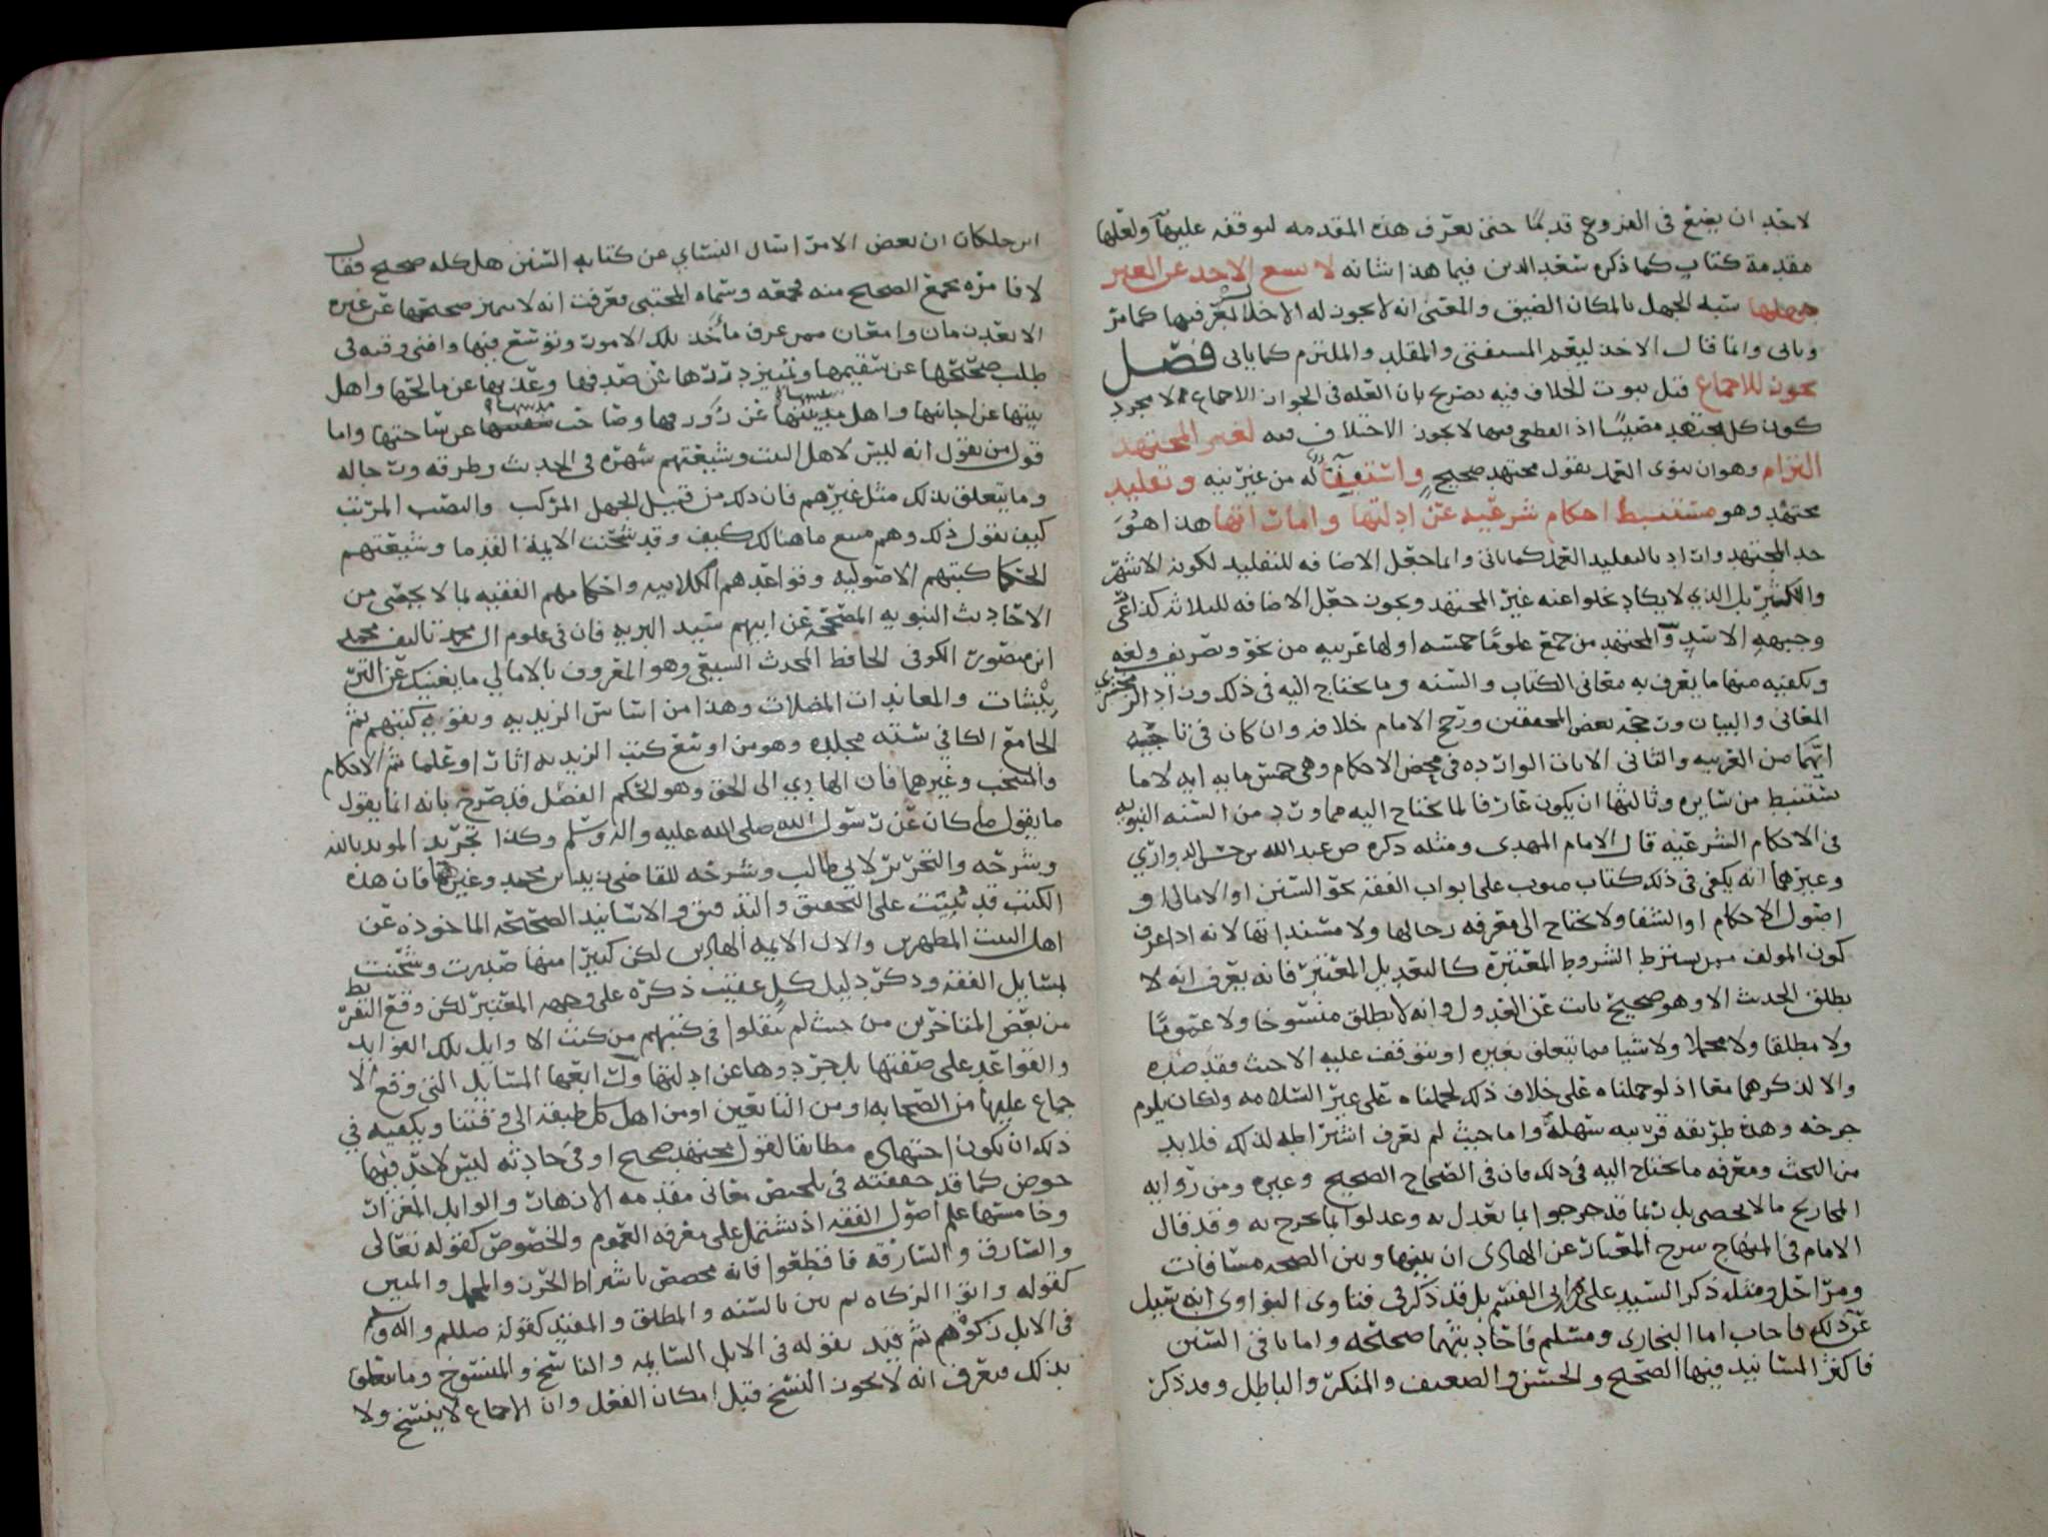 لاحد ان يضع في الفروع قدمًا حتى يعرف هذه المقدمه لتوقفه عليها ولعلها
مقدمة كتاب كما ذكره سعد الدين فيما هذا شانه لا يسع الاخذ عن الغير
جهلها شبه الجهل بالمكان الضيق والمعنى انه لا يجوز له الاخلال بمعرفتها كما مر
وياتي وانما قال الاخذ ليعم المستفتي والمقلد والملتزم كما ياتي فصل
يجوز للاجماع قبل ثبوت الخلاف فيه تصريح بان العله في الجواز الاجماع لا مجرد
كون كل مجتهد مصيبًا اذ القطعي منها لا يجوز الاختلاف فيه لغير المجتهد
التزام وهو ان ينوي العمل بقول مجتهد صحيح واستفتآؤه من غير نيه وتقليد
مجتهد وهو مستنبط احكام شرعيه عن ادلتها واماراتها هذا هو
حد المجتهد واراد بالتقليد العمل كما ياتي وانما جعل الاضافه للتقليد لكونه الاشهر
والاكثر بل الذي لا يكاد يخلوا عنه غير المجتهد ويجوز جعل الاضافه للثلاثه كذا
وجيهه الاسد والمجتهد من جمع علومًا خمسه اولها عربيه من نحو وتصريف ولغه
ويكفيه منها ما يعرف به معاني الكتاب والسنه وما يحتاج اليه في ذلك وزاد الزمخشري
المعاني والبيان ورجحه بعض المحققين ورجح الامام خلافه وان كان في ناحية
انهما من العربيه والثاني الايات الوارده في محض الاحكام وهي خمس مايه ايه لا ما
يستنبط من سايره وثالثها ان يكون عارفا لما يحتاج اليه مما ورد من السنه النبويه
في الاحكام الشرعيه قال الامام المهدي ومثله ذكره ض عبد الله بن حسن الدواري
وغيرهما انه يكفي في ذلك كتاب مبوب على ابواب الفقه نحو السنن او الامالي او
اصول الاحكام او الشفا ولا يحتاج الى معرفه رجالها ولا مستنداتها لانه اذا عرف
كون المولف ممن يشترط الشروط المعتبرة كالتعديل المعتبر فانه يعرف انه لا
يطلق الحديث الا وهو صحيح ثابت عن العدول وانه لا يطلق منسوخا ولا عمومًا
ولا مطلقا ولا مجملا ولا شيا مما يتعلق بغيره او يتوقف عليه الا حيث فقد ضده
والا لذكرهما معا اذ لو حملناه على خلاف ذلك لحملناه على غير السلامه ولكان يلزم
جرحه وهذه طريقه قريبه سهله واما حيث لم تعرف اشتراطه لذلك فلا بد
من البحث ومعرفه ما يحتاج اليه في ذلك فان في الصحاح الصحيح وغيره ومن رواية
المجاريح ما لا يحصى بل ربما قد جرحوا بما تعدل به وعدلوا بما يجرح به وقد قال
الامام في المنهاج شرح المعيار عن الهادي ان بينها وبين الصحه مسافات
ومراحل ومثله ذكر السيد علي بن ابي القسم بل قد ذكر في فتاوى النواوي انه سيل
عن ذلك فاجاب اما البخاري ومسلم فاحاديثهما صحيحه واما باقي السنن
فاكثر المسانيد فيها الصحيح والحسن والضعيف والمنكر والباطل وقد ذكر
ابن خلكان ان بعض الامرا سال النساي عن كتابه السنن هل كله صحيح فقال
لا فامره بجمع الصحيح منه فجمعه وسماه المجتبى فعرفت انه لا يميز صحيحها عن غيره
الا بعد زمان وامعان ممن عرف مأخذ تلك الامور وتوسع فيها وافنى وقته في
طلب صحيحها عن سقيمها وتمييز دررها عن صدفها وعذبها عن مالحها واهل
بيتها عن اجانبها واهل مدينتها عن زورها وصاحب سفينتها عن ساحتها واما
قول من يقول انه ليس لاهل البيت وشيعتهم شهرة في الحديث وطرقه ورجاله
وما يتعلق بذلك مثل غيرهم فان ذلك من قبيل الجهل المركب والنصب المرتب
كيف يقول ذلك وهم منبع ما هنالك كيف وقد شحنت الايمة القدما وشيعتهم
الحكما كتبهم الاصوليه وقواعدهم الكلاميه واحكامهم الفقهيه بما لا يحصى من
الاحاديث النبويه المصححه عن ابيهم سيد البريه فان في علوم ال محمد تاليف محمد
ابن منصور الكوفي الحافظ المحدث الشيعي وهو المعروف بالامالي ما يغنيك عن
والمعاندات المضلات وهذا من اساس الزيديه ومن كتبهم ثم
الجامع الكافي ستة مجلده وهو من اوسع كتب الزيديه اثارا وعلما ثم الاحكام
والمنتخب وغيرهما فان الهادي الى الحق وهو الحكم الفصل قد صرح بانه انما يقول
ما يقول ما كان عن رسول الله صلى الله عليه واله وسلم وكذا تجريد المويد بالله
وشرحه والتحرير لابي طالب وشرحه للقاضي زيد بن محمد وغيرهما فان هذه
الكتب قد بنيت على التحقيق والتدقيق والاسانيد الصحيحه الماخوذه عن
اهل البيت المطهرين والال الايمه الهادين لكن كثيرا منها صدرت وشحنت
بمسايل الفقه وذكر دليل كل عقيب ذكره على وجهه المعتبر لكن وقع التفريط
من بعض المتاخرين من حيث لم ينقلوا في كتبهم من كتب الاوايل تلك الفوايد
والقواعد على صفتها بل جردوها عن ادلتها ورابعها المسايل التي وقع الا
جماع عليها من الصحابه او من التابعين او من اهل كل طبقه الى وقتنا ويكفيه في
ذلك ان يكون اجتهاده مطابقا لقول مجتهد صحيح او في حادثه ليس لاحد فيها
خوض كما قد حققته في تلخيص معاني مقدمه الازهار والوابل المغزار
وخامستها علم اصول الفقه اذ يشتمل على معرفه العموم والخصوص كقوله تعالى
والسارق والسارقه فاقطعوا فانه مخصص باشتراط الحرز والمجمل والمبين
كقوله واتوا الزكاه ثم بين بالسنه والمطلق والمقيد كقوله صللم واله وسلم
في الابل زكوة ثم قيد بقوله في الابل السايمه والناسخ والمنسوخ وما يتعلق
بذلك فيعرف انه لا يجوز النسخ قبل امكان الفعل وان الاجماع لا ينسخ ولا